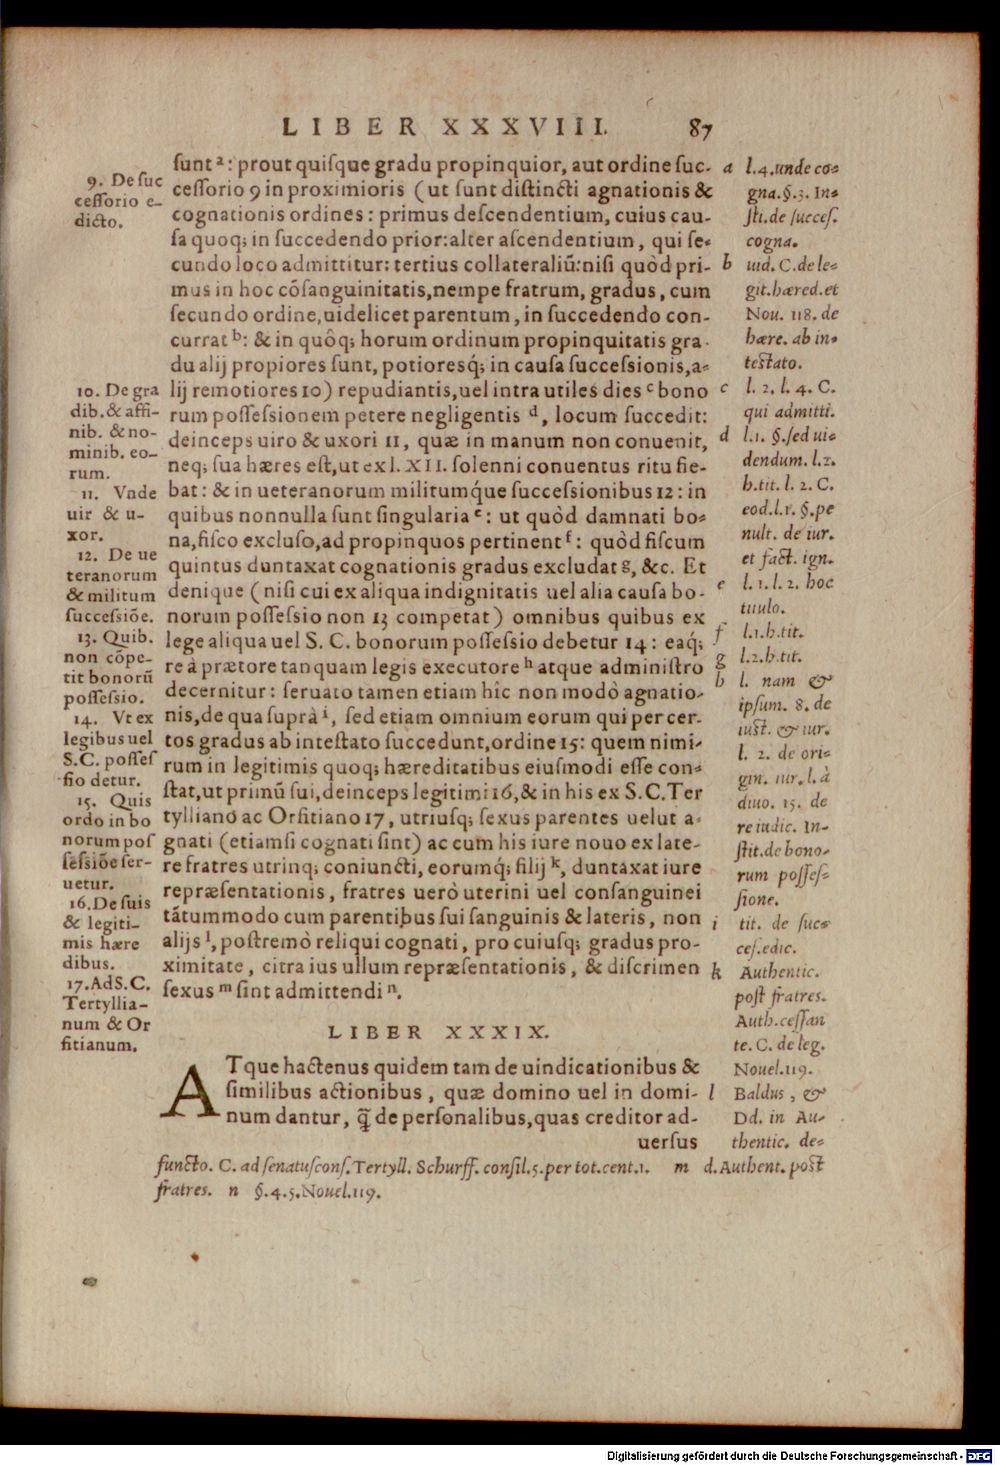 LIBER XXXVIII. 87
9. De suc
cessorio e-
dicto.
10. De gra
dib. & affi-
nib. & no-
minib. eo-
rum.
11. Vnde
uir & u-
xor.
12. De ue
teranorum
& militum
successiõe.
13. Quib.
non cõpe-
tit bonorũ
possessio.
14. Vt ex
legibus uel
S.C. posses
sio detur.
15. Quis
ordo in bo
norum pos
sessiõe ser-
uetur.
16. De suis
& legiti-
mis hære
dibus.
17. Ad S.C.
Tertyllia-
num & Or
fitianum.
sunt ª: prout quisque gradu propinquior, aut ordine suc-
cessorio 9 in proximioris (ut sunt distincti agnationis &
cognationis ordines: primus descendentium, cuius cau-
sa quoq; in succedendo prior: alter ascendentium, qui se-
cundo loco admittitur: tertius collateraliũ: nisi quòd pri-
mus in hoc cõsanguinitatis, nempe fratrum, gradus, cum
secundo ordine, uidelicet parentum, in succedendo con-
currat b: & in quôq; horum ordinum propinquitatis gra-
du alij propiores sunt, potioresq́; in causa successionis, a-
lij remotiores 10) repudiantis, uel intra utiles dies c bono
rum possessionem petere negligentis d, locum succedit:
deinceps uiro & uxori 11, quæ in manum non conuenit,
neq; sua hæres est, ut ex l. XII. solenni conuentus ritu fie-
bat: & in ueteranorum militumq́ue successionibus 12: in
quibus nonnulla sunt singularia e: ut quòd damnati bo-
na, fisco excluso, ad propinquos pertinent f: quòd fiscum
quintus duntaxat cognationis gradus excludat g, &c. Et
denique (nisi cui ex aliqua indignitatis uel alia causa bo-
norum possessio non 13 competat) omnibus quibus ex
lege aliqua uel S. C. bonorum possessio debetur 14: eaq́;
re à prætore tanquam legis executore h atque administro
decernitur: seruato tamen etiam hîc non modò agnatio-
nis, de qua suprà i, sed etiam omnium eorum qui per cer-
tos gradus ab intestato succedunt, ordine 15: quem nimi-
rum in legitimis quoq; hæreditatibus eiusmodi esse con-
stat, ut primũ sui, deinceps legitimi 16, & in his ex S. C. Ter
tylliano ac Orfitiano 17, utriusq; sexus parentes uelut a-
gnati (etiamsi cognati sint) ac cum his iure nouo ex late-
re fratres utrinq; coniuncti, eorumq́; filij k, duntaxat iure
repræsentationis, fratres uerò uterini uel consanguinei
tãtummodo cum parentibus sui sanguinis & lateris, non
alijs l, postremò reliqui cognati, pro cuiusq; gradus pro-
ximitate, citra ius ullum repræsentationis, & discrimen
sexus m sint admittendi n.
LIBER XXXIX.
ATque hactenus quidem tam de uindicationibus &
similibus actionibus, quæ domino uel in domi-
num dantur, q̃ de personalibus, quas creditor ad-
uersus
a l. 4. unde co-
gna. §. 3. In-
sti. de succes.
cogna.
b uid. C. de le-
git. hæred. et
Nou. 118. de
hære. ab in-
testato.
c l. 2. l. 4. C.
qui admitti.
d l. 1. §. sed ui-
dendum. l. 2.
h. tit. l. 2. C.
eod. l. 1. §. pe
nult. de iur.
et fact. ign.
e l. 1. l. 2. hoc
titulo.
f l. 1. h. tit.
g l. 2. h. tit.
h l. nam &
ipsum. 8. de
iust. & iur.
l. 2. de ori-
gin. iur. l. à
diuo. 15. de
re iudic. In-
stit. de bono-
rum posses-
sione.
i tit. de suc-
ces. edic.
k Authentic.
post fratres.
Auth. cessan
te. C. de leg.
Nouel. 119.
l Baldus, &
Dd. in Au-
thentic. de-
functo. C. ad senatuscons. Tertyll. Schurff. consil. 5. per tot. cent. 1. m d. Authent. post
fratres. n §. 4. 5. Nouel. 119.
Digitalisierung gefördert durch die Deutsche Forschungsgemeinschaft - DFG